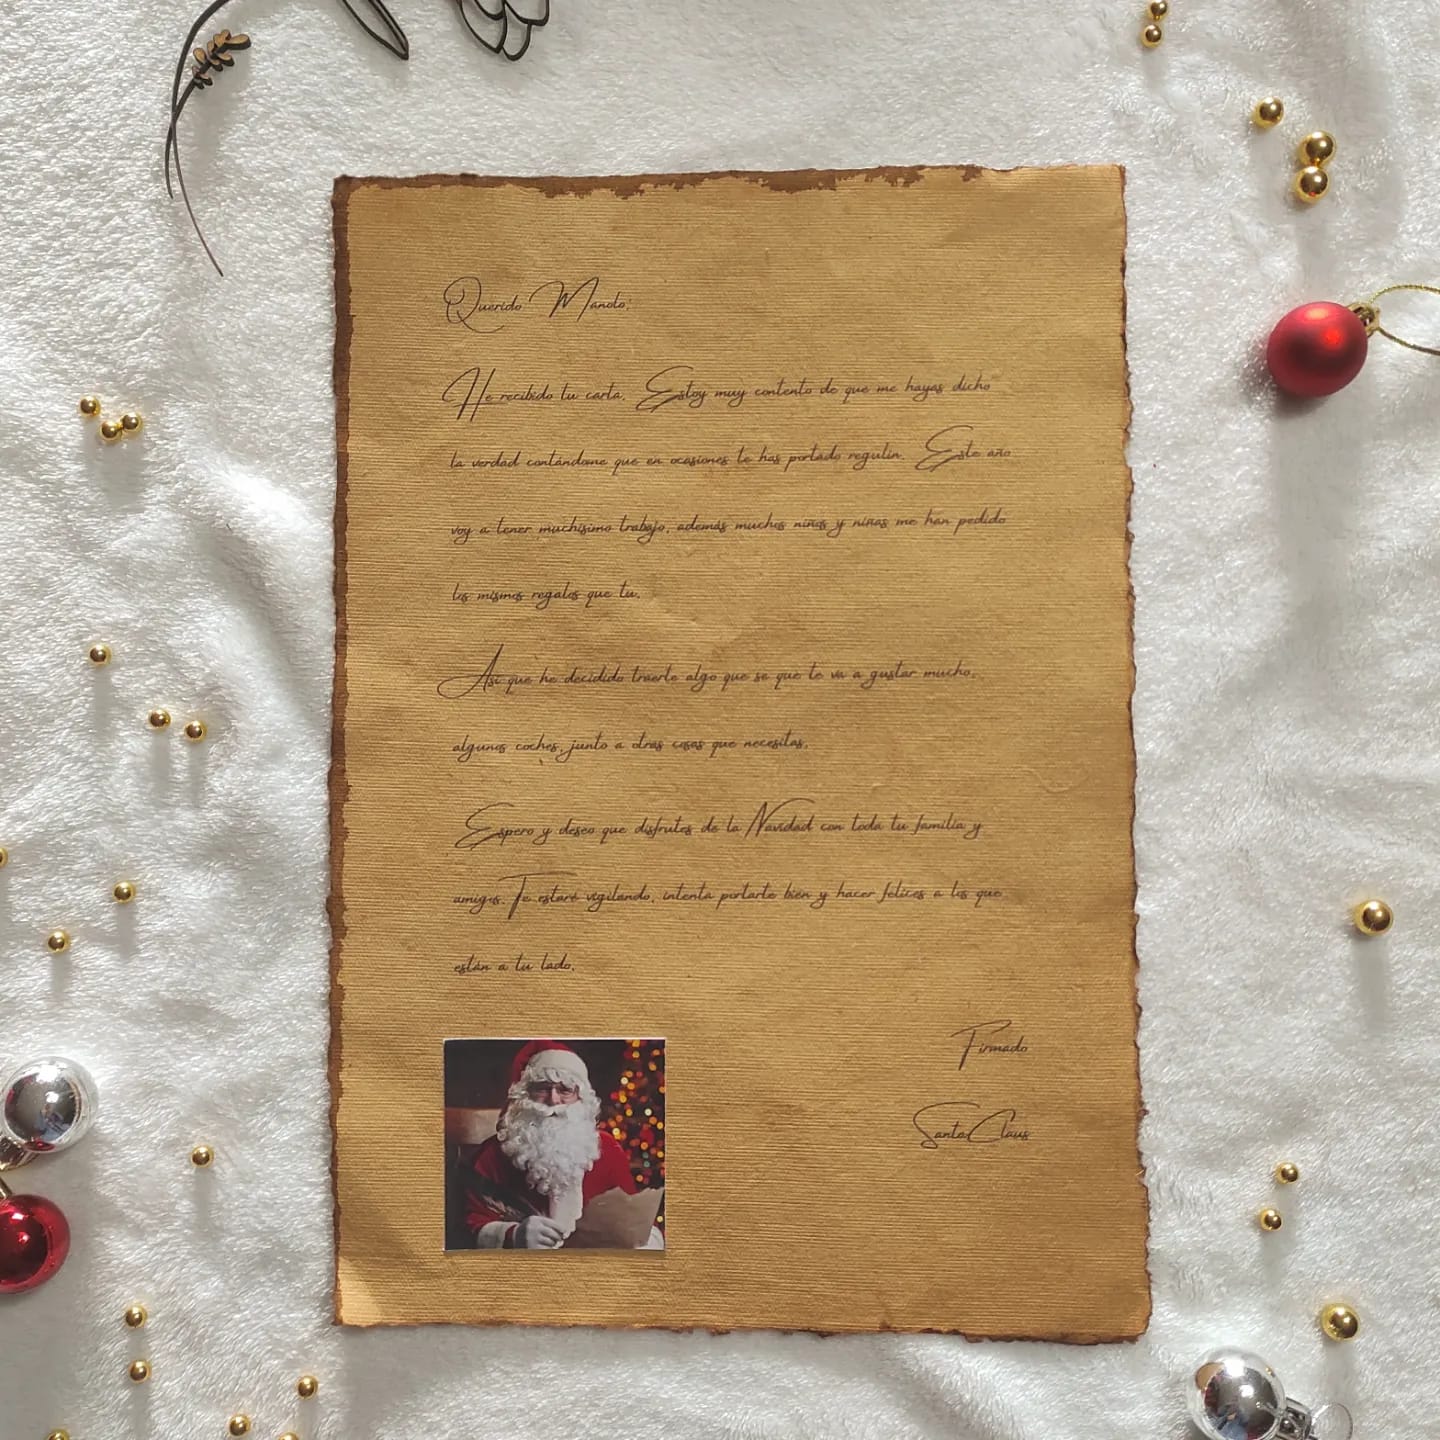 Querido Manolo:
He recibido tu carta. Estoy muy contento de que me hayas dicho
la verdad contándome que en ocasiones te has portado regulín. Este año
voy a tener muchísimo trabajo, además muchos niños y niñas me han pedido
los mismos regalos que tu.
Así que he decidido traerte algo que se que te va a gustar mucho,
algunos coches, junto a otras cosas que necesitas.
Espero y deseo que disfrutes de la Navidad con toda tu familia y
amigos. Te estaré vigilando, intenta portarte bien y hacer felices a los que
están a tu lado.
Firmado
Santa Claus